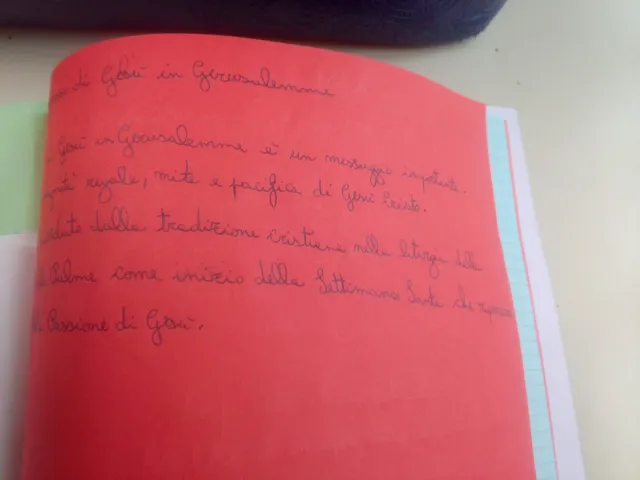 di Gesù in Gerusalemme
Gesù in Gerusalemme è un messaggio importante.
regale, mite e pacifica di Gesù Cristo.
dalla tradizione cristiana nella liturgia della
Palme come inizio della Settimana Santa che
Passione di Gesù.